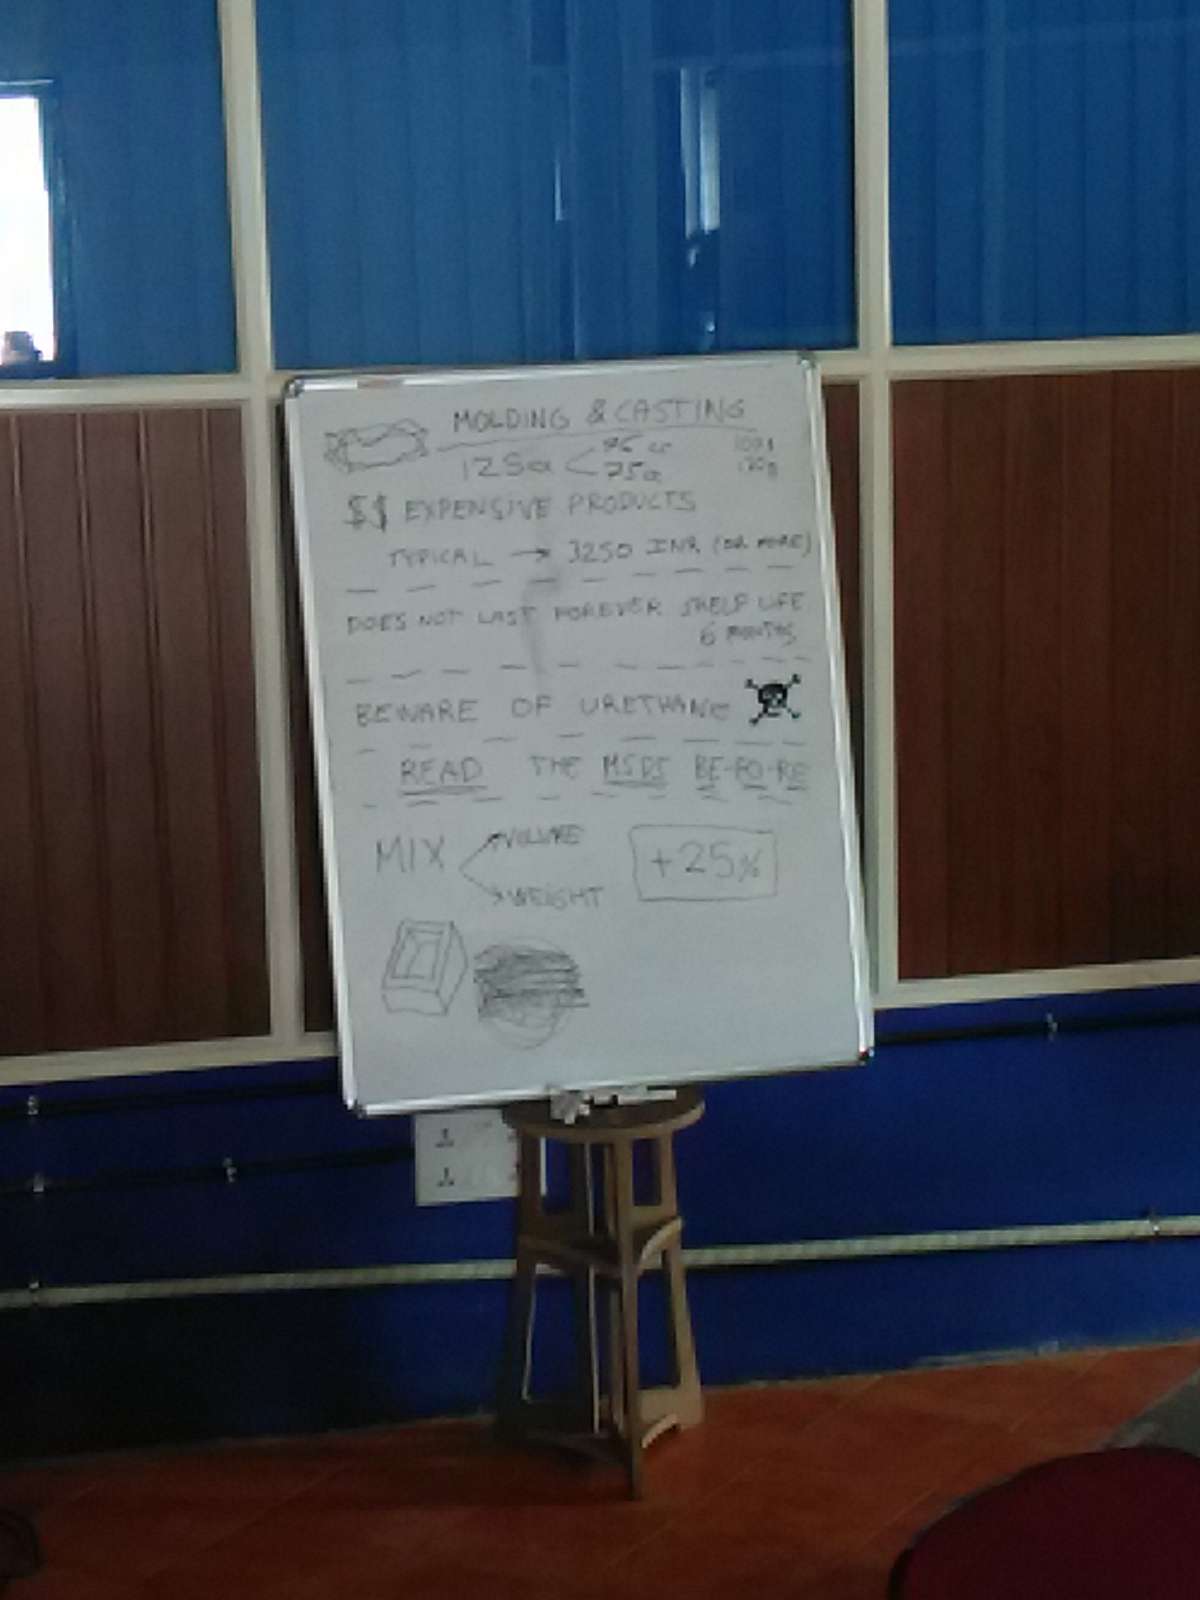 MOLDING & CASTING
$$ EXPENSIVE PRODUCTS
TYPICAL → 3250 INR (OR MORE)
DOES NOT LAST FOREVER SHELF LIFE
6 MONTHS
BEWARE OF URETHANE
READ THE MSDS BE-FO-RE
MIX VOLUME
WEIGHT
+25%